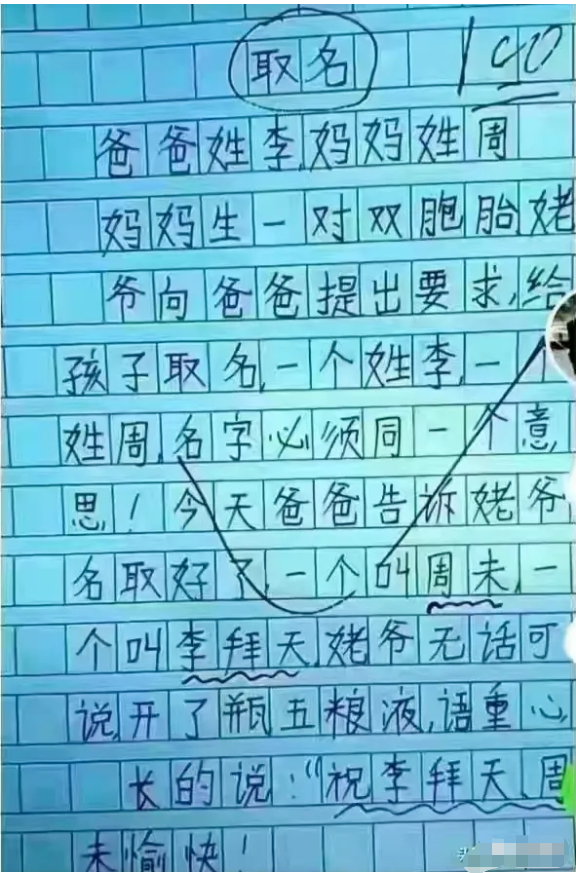 取名
100
爸爸姓李,妈妈姓周
妈妈生一对双胞胎姥
爷向爸爸提出要求,给
孩子取名,一个姓李,一个
姓周,名字必须同一个意
思!今天爸爸告诉姥爷
名取好了,一个叫周末,一
个叫李拜天,姥爷无话可
说,开了瓶五粮液,语重心
长的说:“祝李拜天、周
末愉快!